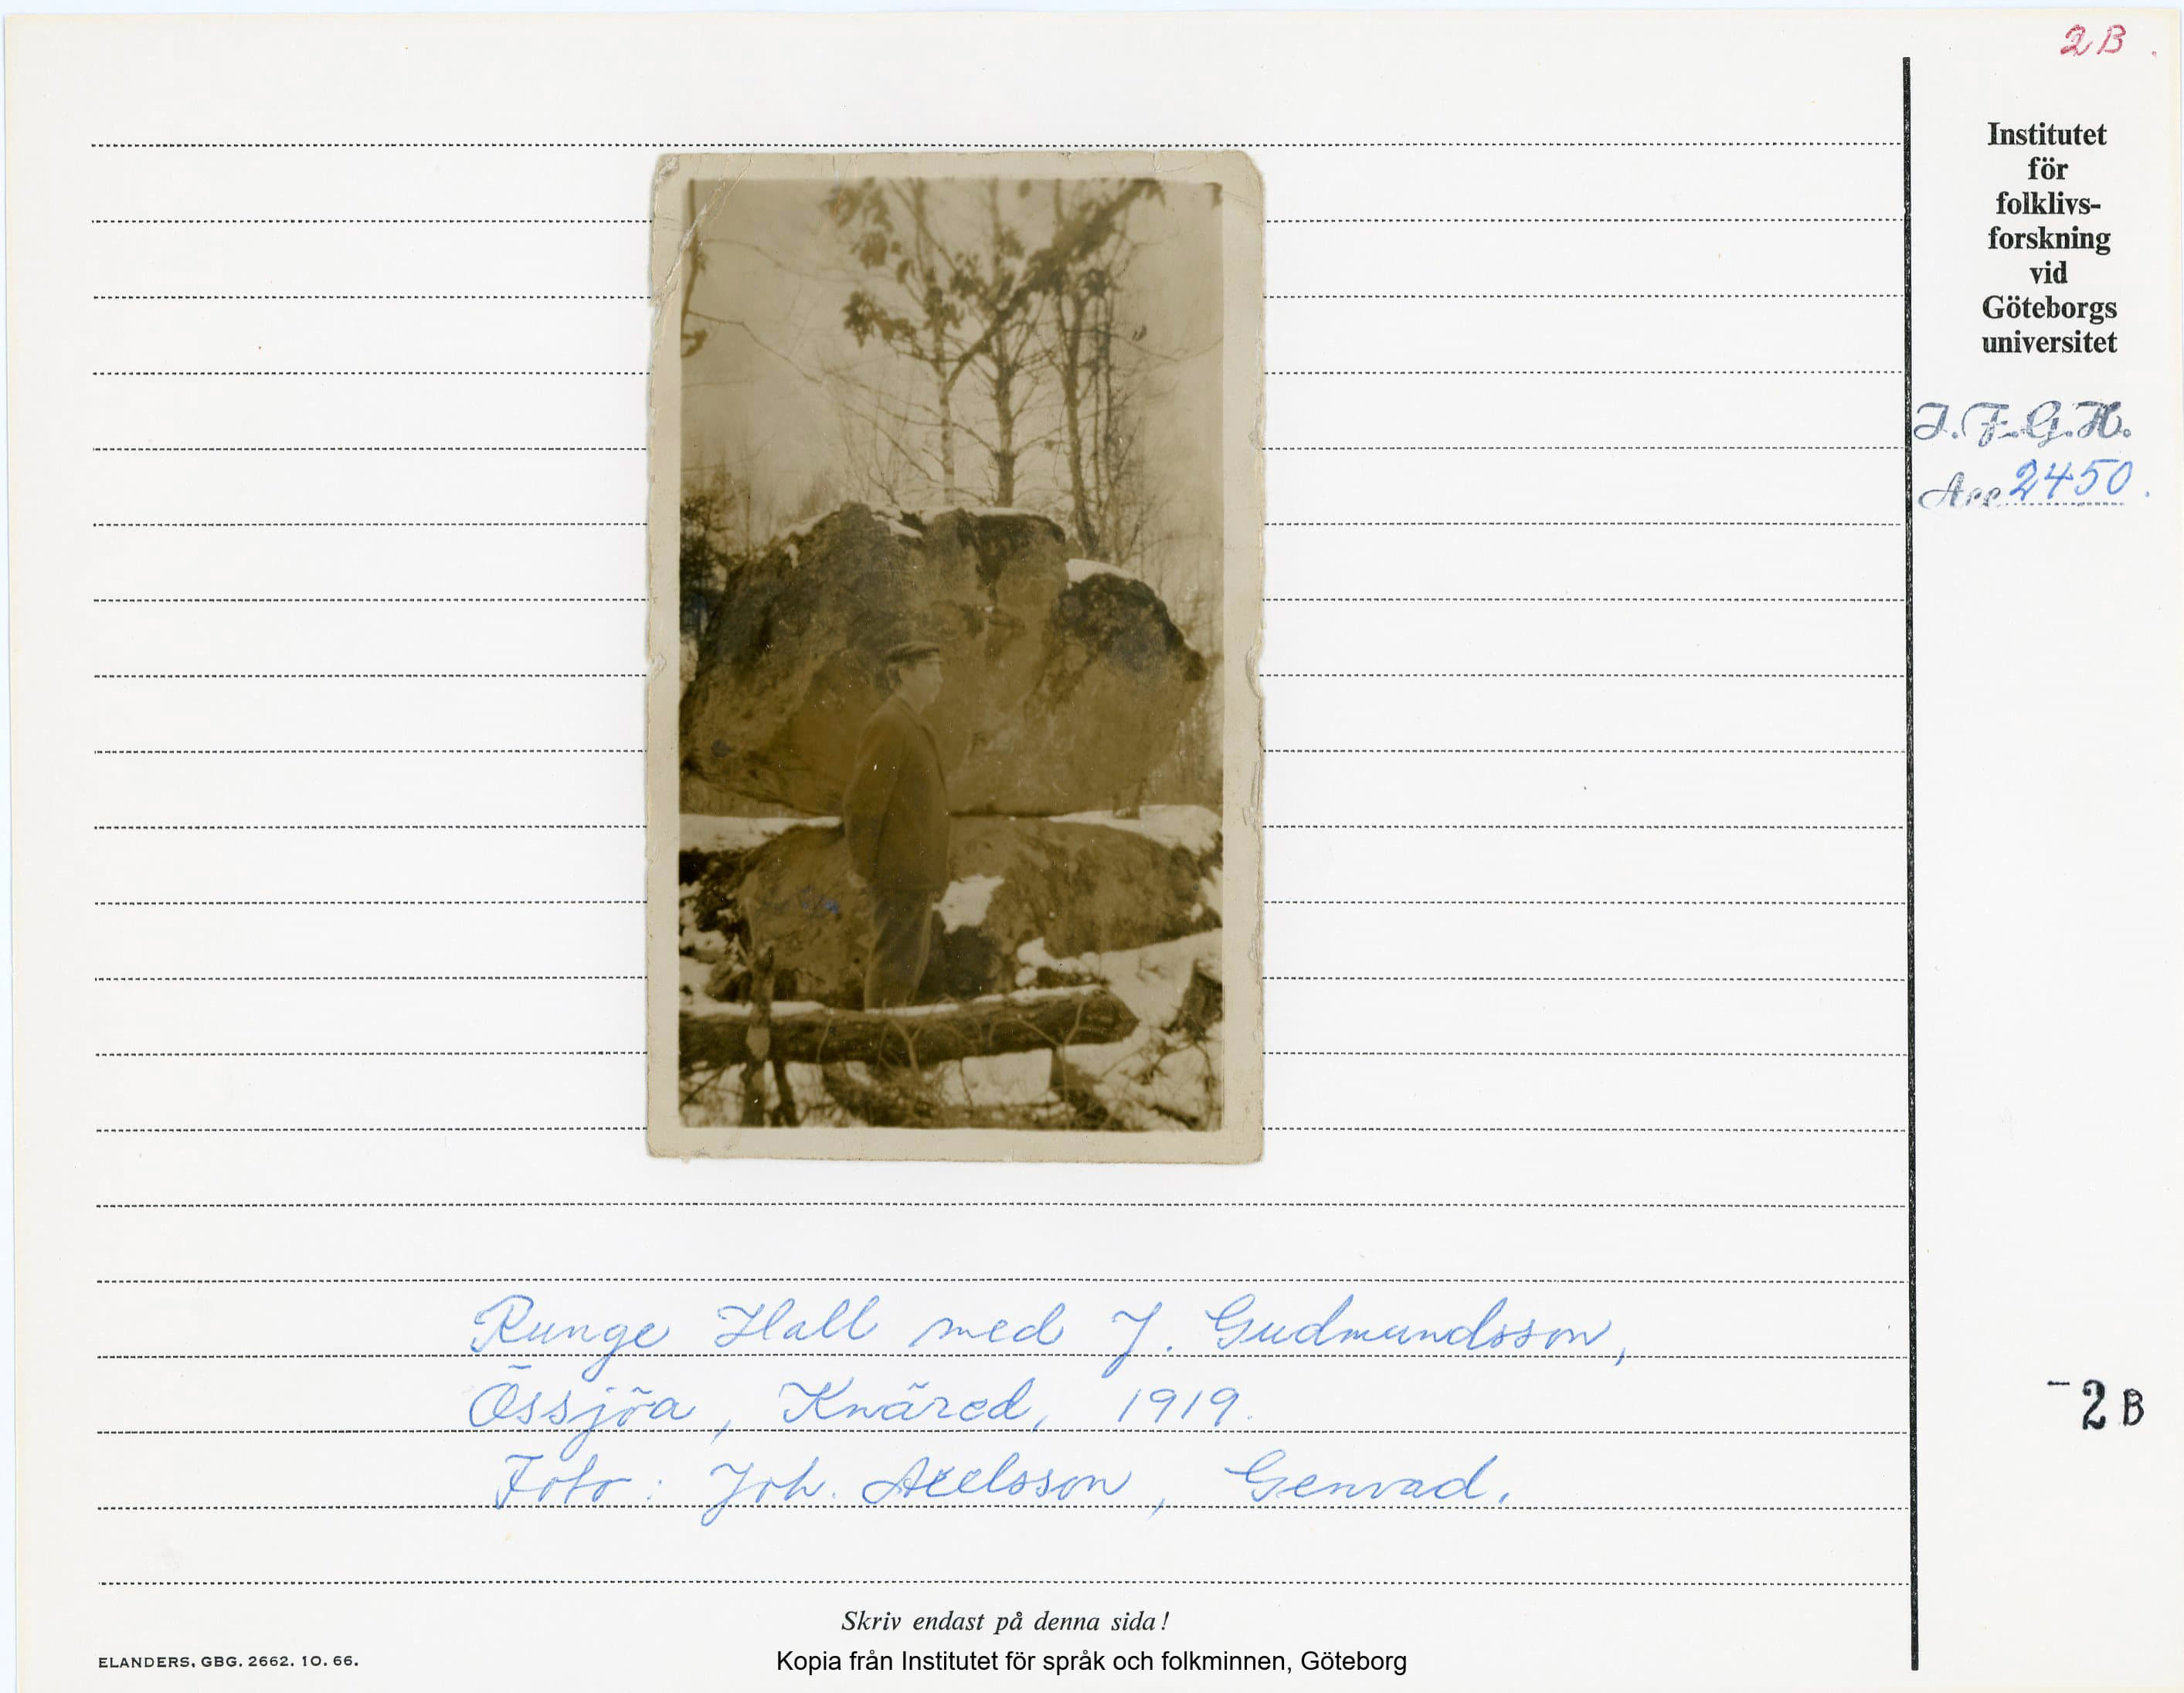 2B.
Institutet
för
folklivs-
forskning
vid
Göteborgs
universitet
I.F.G.H.
Acc 2450.
Runge Hall med J. Gudmundsson,
Össjöa, Knäred, 1919.
Foto: Joh. Axelsson, Genvad.
-2B
Skriv endast på denna sida!
ELANDERS, GBG. 2662. 10. 66.
Kopia från Institutet för språk och folkminnen, Göteborg